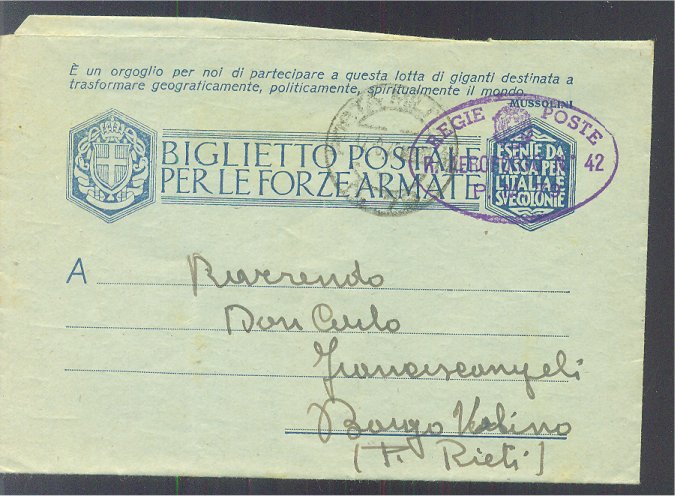 È un orgoglio per noi di partecipare a questa lotta di giganti destinata a
trasformare geograficamente, politicamente, spiritualmente il mondo.
MUSSOLINI
REGIE POSTE
R. AEROPORTO N° 42
P. M.
BIGLIETTO POSTALE
PER LE FORZE ARMATE
ESENTE DA
TASSA PER
L'ITALIA E
SUE COLONIE
A Reverendo
Don Carlo
Franciscangeli
Borgo Velino
(P. Rieti)